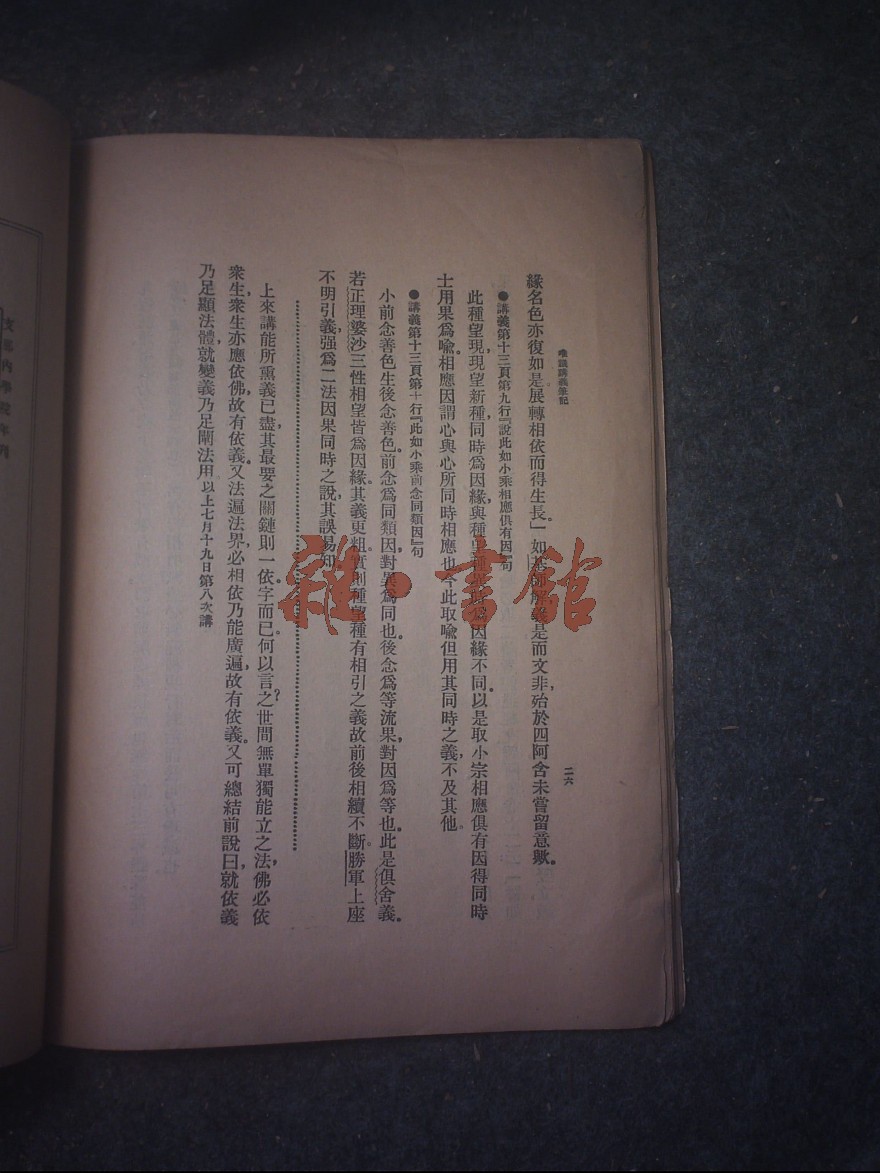 唯識講義筆記
二六
緣名色亦復如是展轉相依而得生長」如基師解義是而文非,殆於四阿含未嘗留意歟。
●講義第十三頁第九行『說此如小乘相應俱有因』句
此種望現,現望新種,同時為因緣,與種望種異時為因緣不同。以是取小宗相應俱有因得同時
士用果為喻。相應因謂心與心所同時相應也今此取喻但用其同時之義,不及其他。
●講義第十三頁第十行『此如小乘前念同類因』句
小前念善色生後念善色。前念為同類因,對異為同也。後念為等流果,對因為等也。此是俱舍義。
若正理婆沙三性相望皆為因緣。其義更粗。實則種望種有相引之義故前後相續不斷。勝軍上座
不明引義,强為二法因果同時之說,其誤易知。
上來講能所熏義已盡其最要之關鍵則一依字而已。何以言之?世間無單獨能立之法,佛必依
衆生,衆生亦應依佛,故有依義。又法遍法界,必相依乃能廣遍,故有依義。又可總結前說曰,就依義
乃足顯法體,就變義乃足闡法用以上七月十九日第八次講
支那內學院年刊
雜·書館